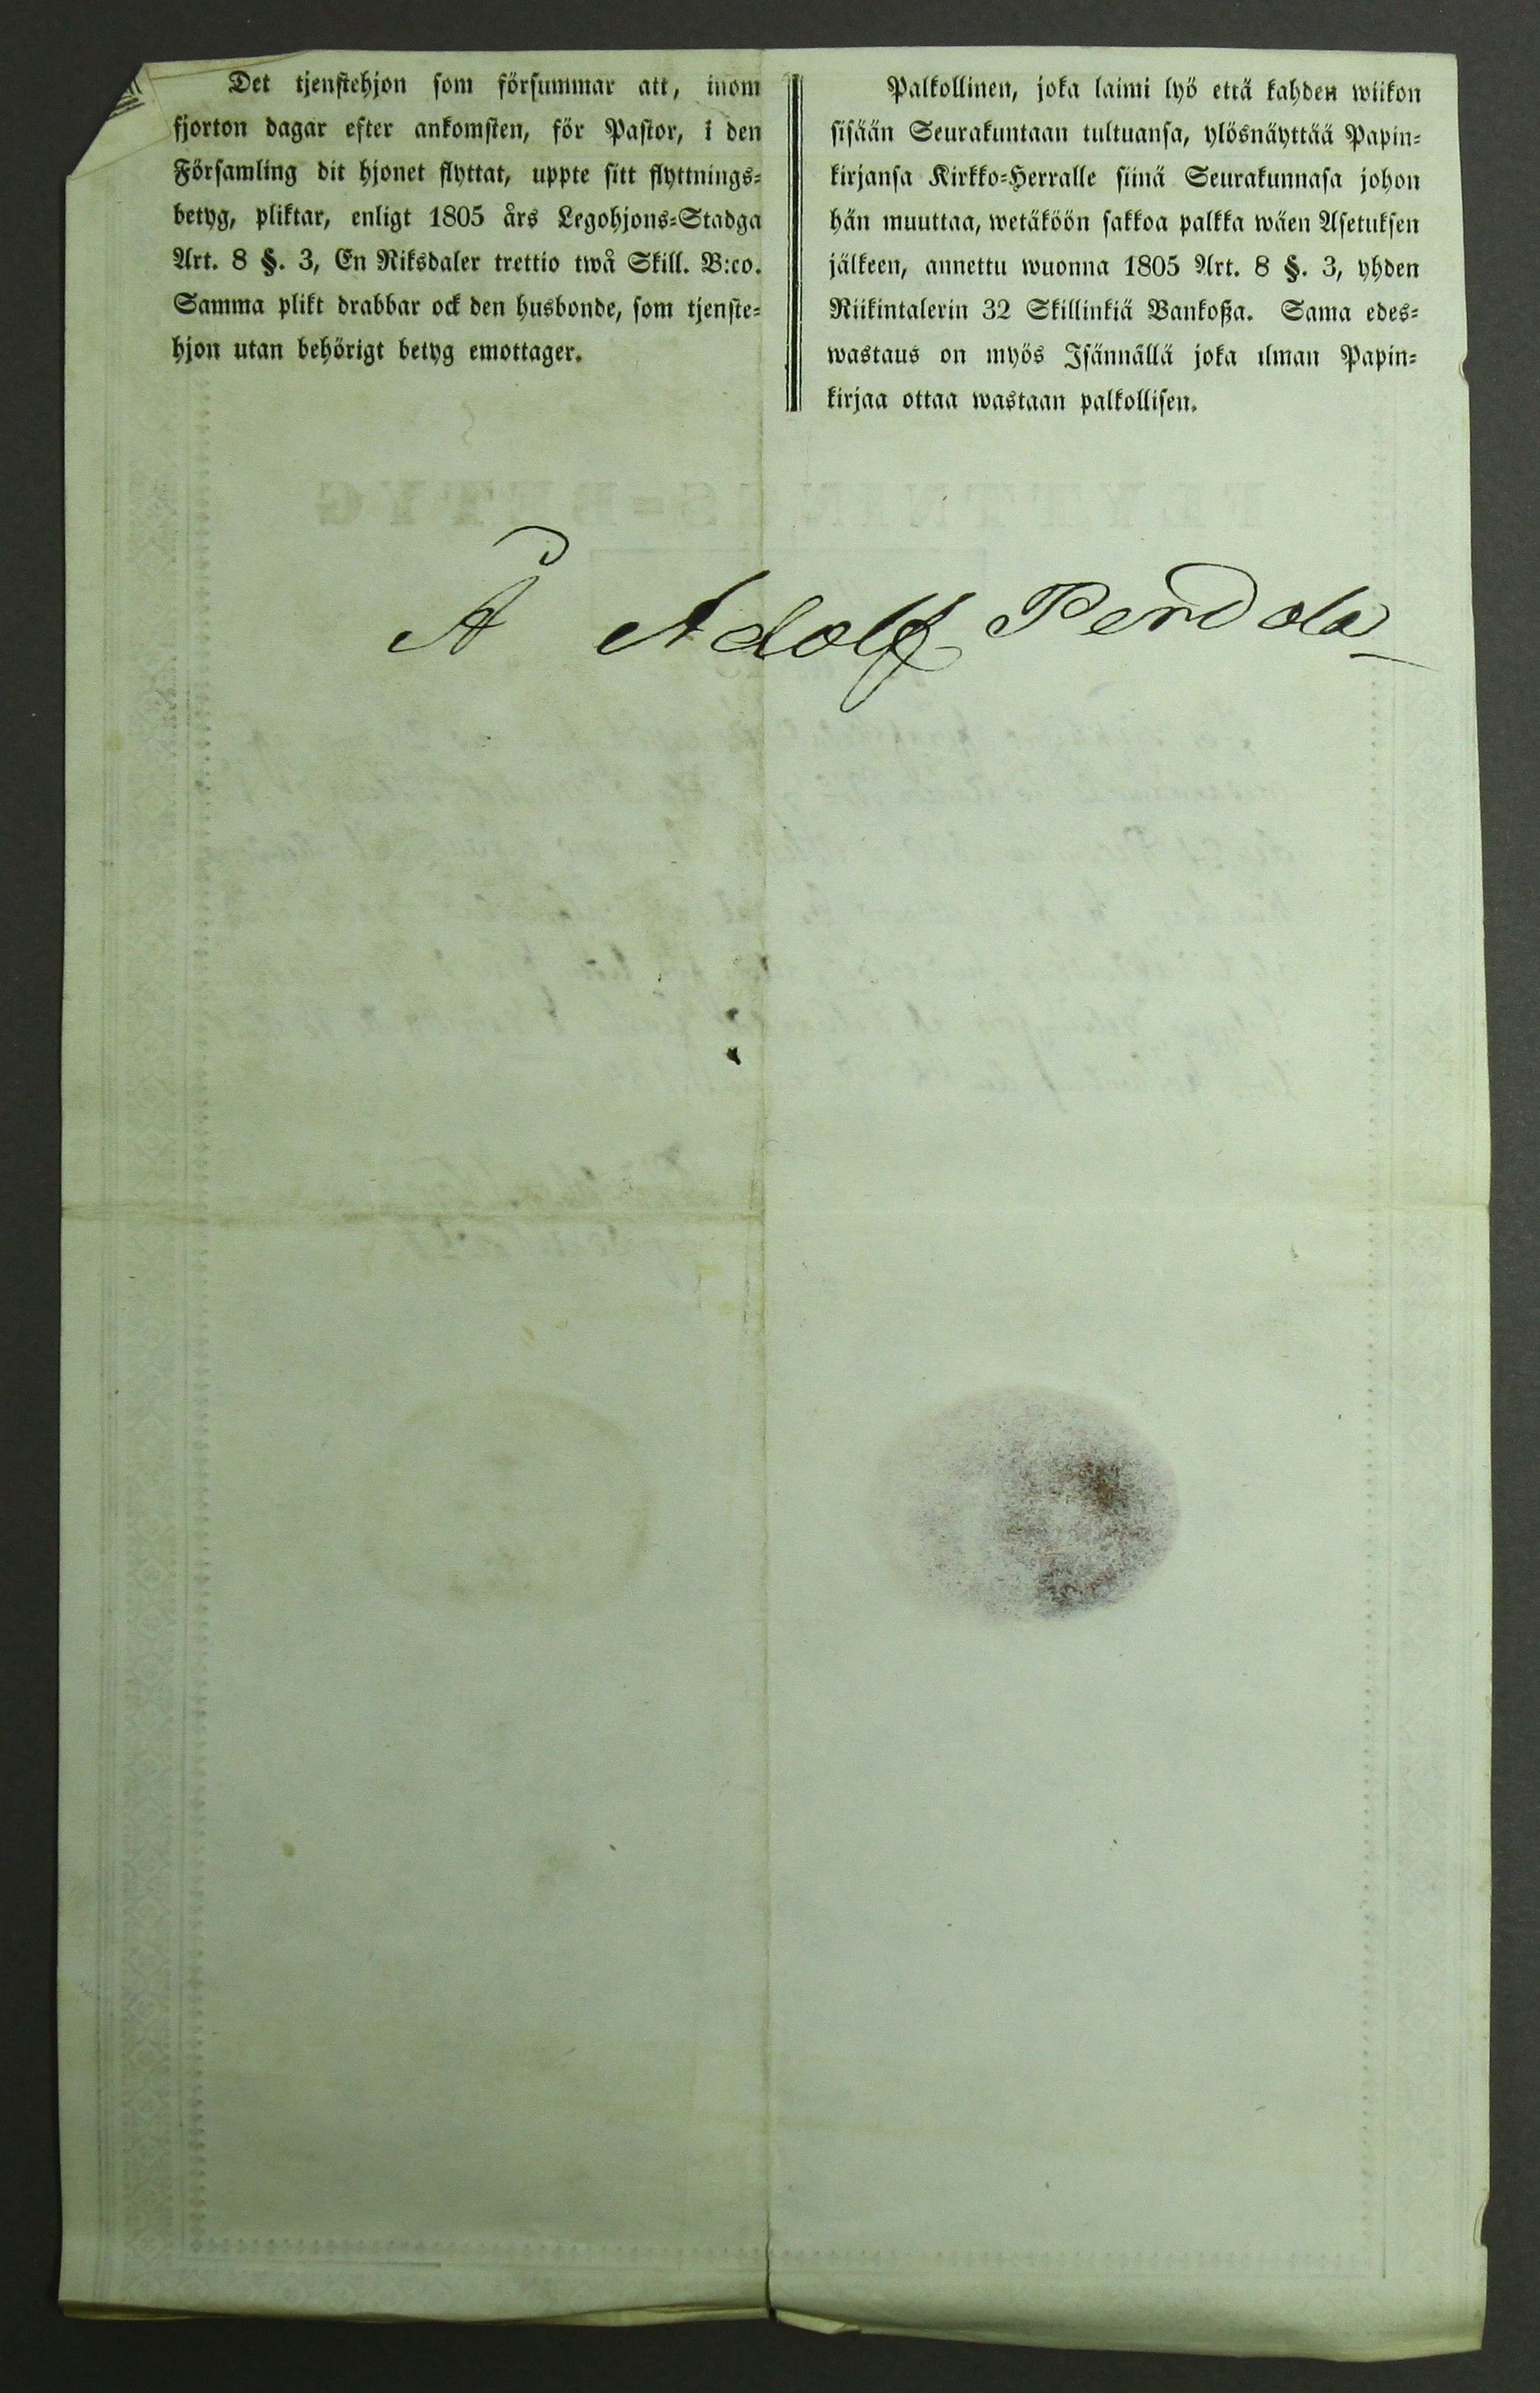 Det tjenstehjon som försummar att, inom
fjorton dagar efter ankomsten, för Pastor, i den
Församling dit hjonet flyttat, uppte sitt flyttnings=
betyg, pliktar, enligt 1805 års Legohjons=Stadga
Art. 8 §. 3, En Riksdaler trettio twå Skill. B:co.
Samma plikt drabbar ock den husbonde, som tjenste=
hjon utan behörigt betyg emottager.
Palkollinen, joka laimi lyö että kahden wiikon
sisään Seurakuntaan tultuansa, ylösnäyttää Papin=
kirjansa Kirkko=Herralle siinä Seurakunnasa johon
hän muuttaa, wetäköön sakkoa palkka wäen Asetuksen
jälkeen, annettu wuonna 1805 Art. 8 §. 3, yhden
Riikintalerin 32 Skillinkiä Bankoßa. Sama edes=
wastaus on myös Isännällä joka ilman Papin=
kirjaa ottaa wastaan palkollisen.
Å Adolf